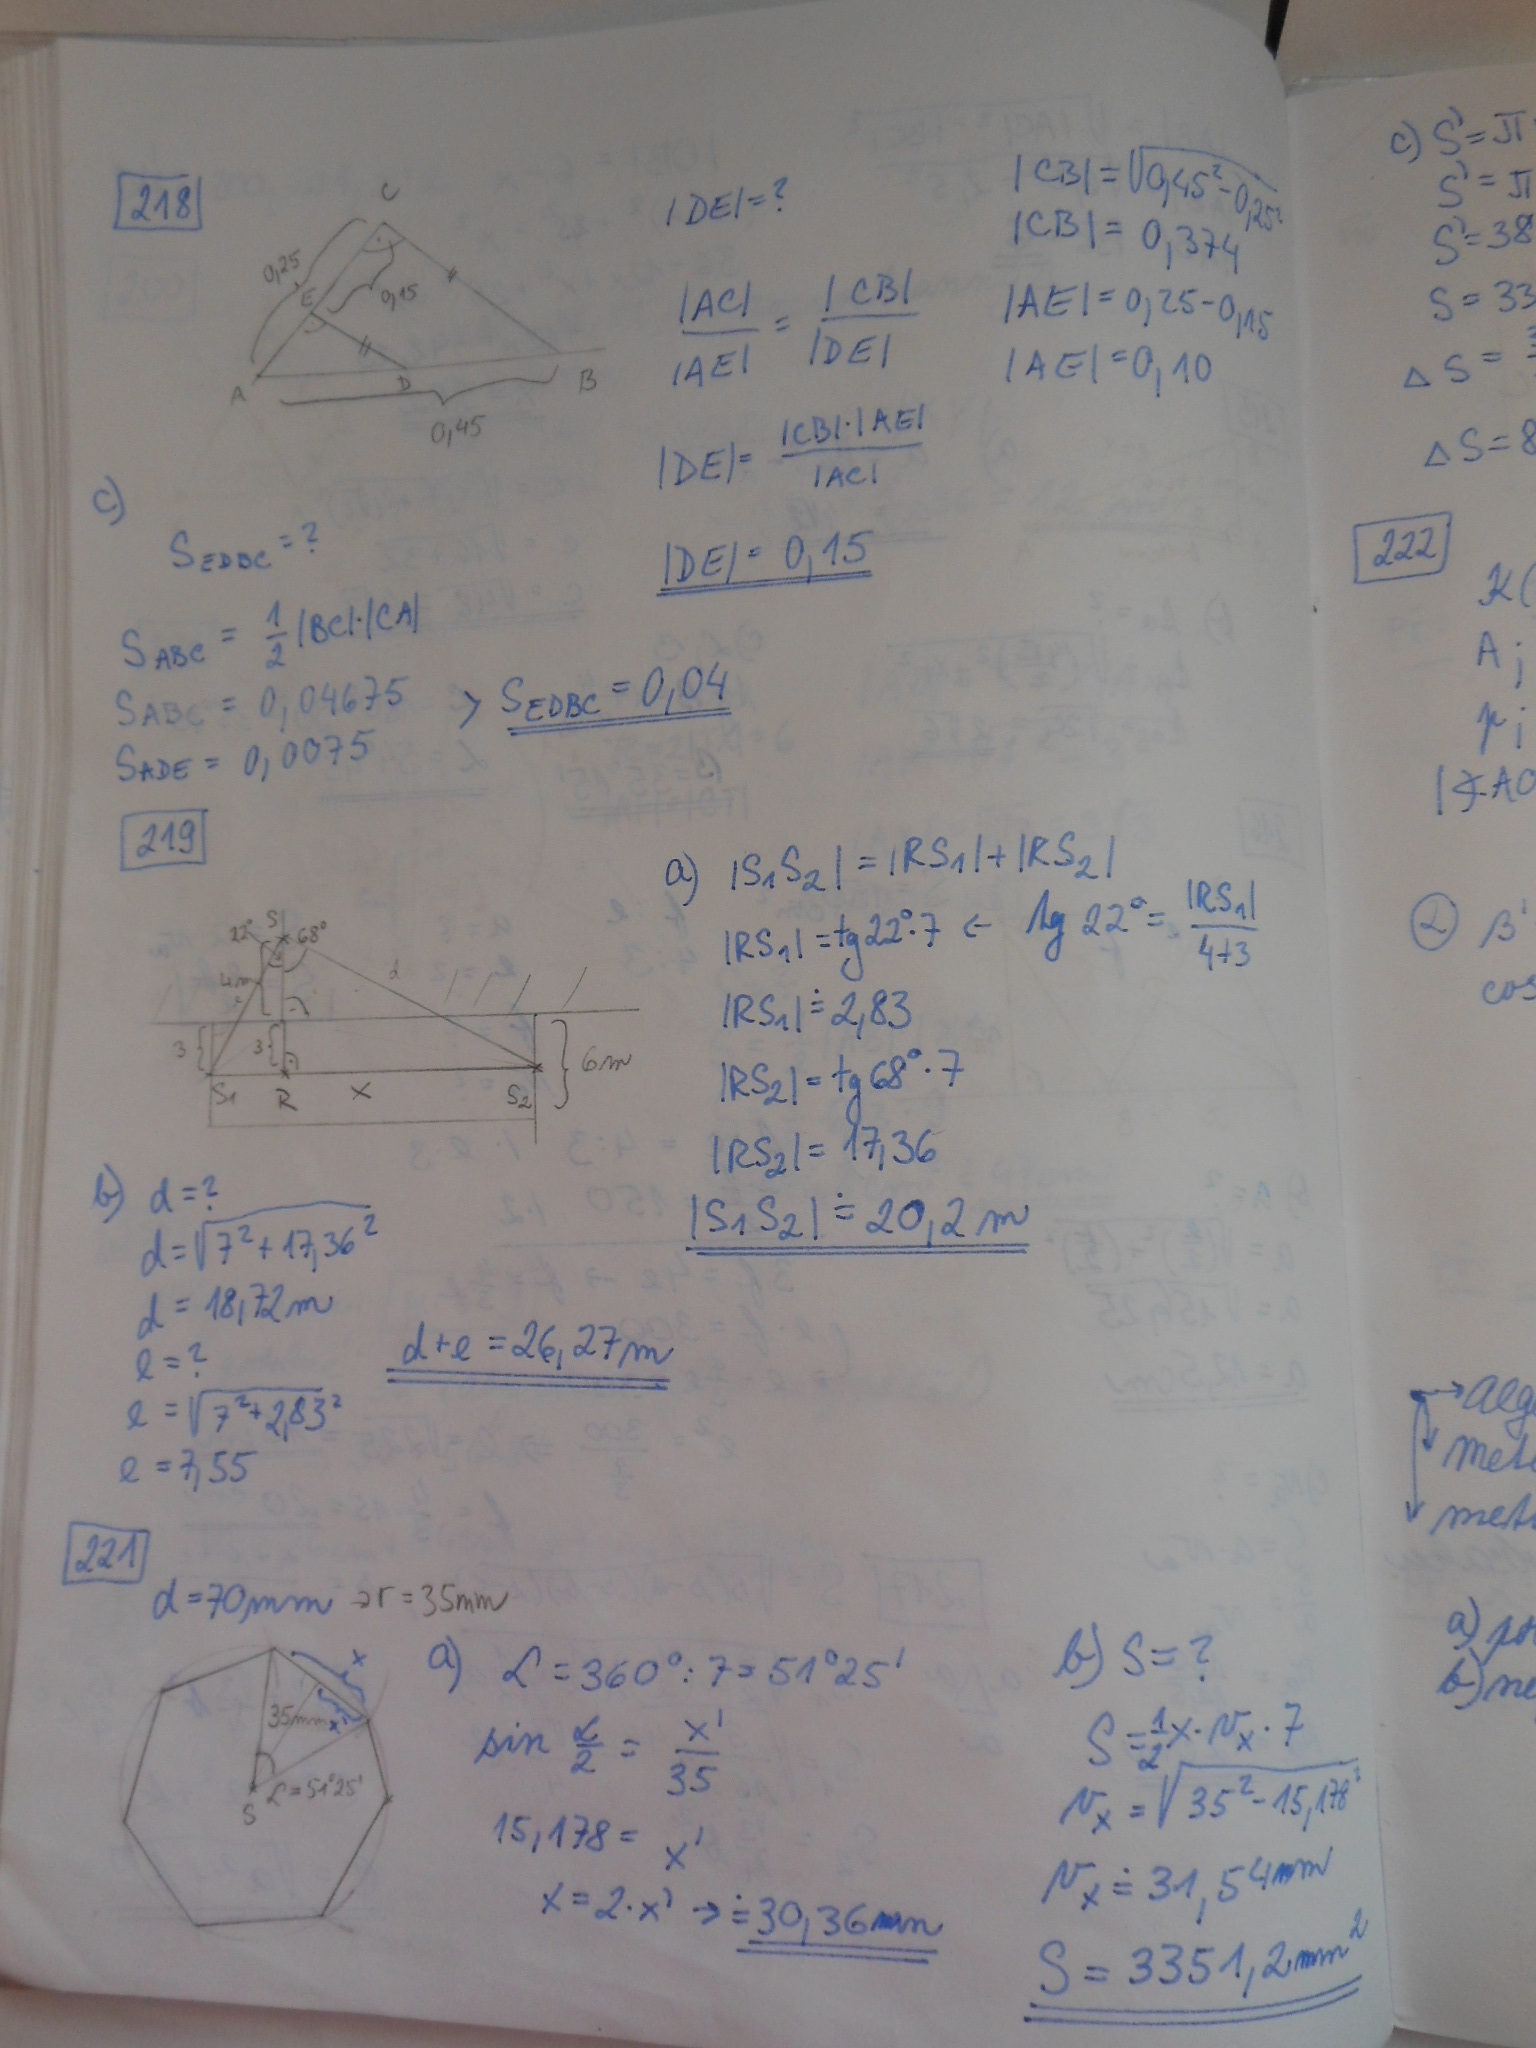 218
C
0,25
E
0,15
A
D
B
0,45
|DE|=?
|AC| / |AE| = |CB| / |DE|
|DE|= |CB|·|AE| / |AC|
|DE|= 0,15
|CB|=√0,45²-0,25²
|CB|= 0,374
|AE|=0,25-0,15
|AE|=0,10
c)
S EDBC = ?
S ABC = 1/2 |BC|·|CA|
S ABC = 0,04675
> S EDBC = 0,04
S ADE = 0,0075
219
22° S 68°
4m
d
3
3
6m
S1 R X S2
a) |S1S2| = |RS1|+|RS2|
|RS1| = tg22°·7 ← tg 22° = |RS1| / 4+3
|RS1| ≐ 2,83
|RS2| = tg68°·7
|RS2| = 17,36
|S1S2| ≐ 20,2m
b) d=?
d=√7²+17,36²
d= 18,72m
e=?
e=√7²+2,83²
e=7,55
d+e = 26,27m
221
d=70mm → r=35mm
x
35mm
x'
S
α=51°25'
a) α = 360°:7= 51°25'
sin α/2 = x'/35
15,178 = x'
x = 2·x' → ≐ 30,36mm
b) S=?
S=1/2x·vx·7
vx = √35²-15,178²
vx ≐ 31,54mm
S= 3351,2mm²
c) S'=π
S'=π
S'=38
S=33
ΔS=
ΔS=8
222
K(
A;
p;
|∢AO
2 β'
cos
meto
meto
a)
b) ne